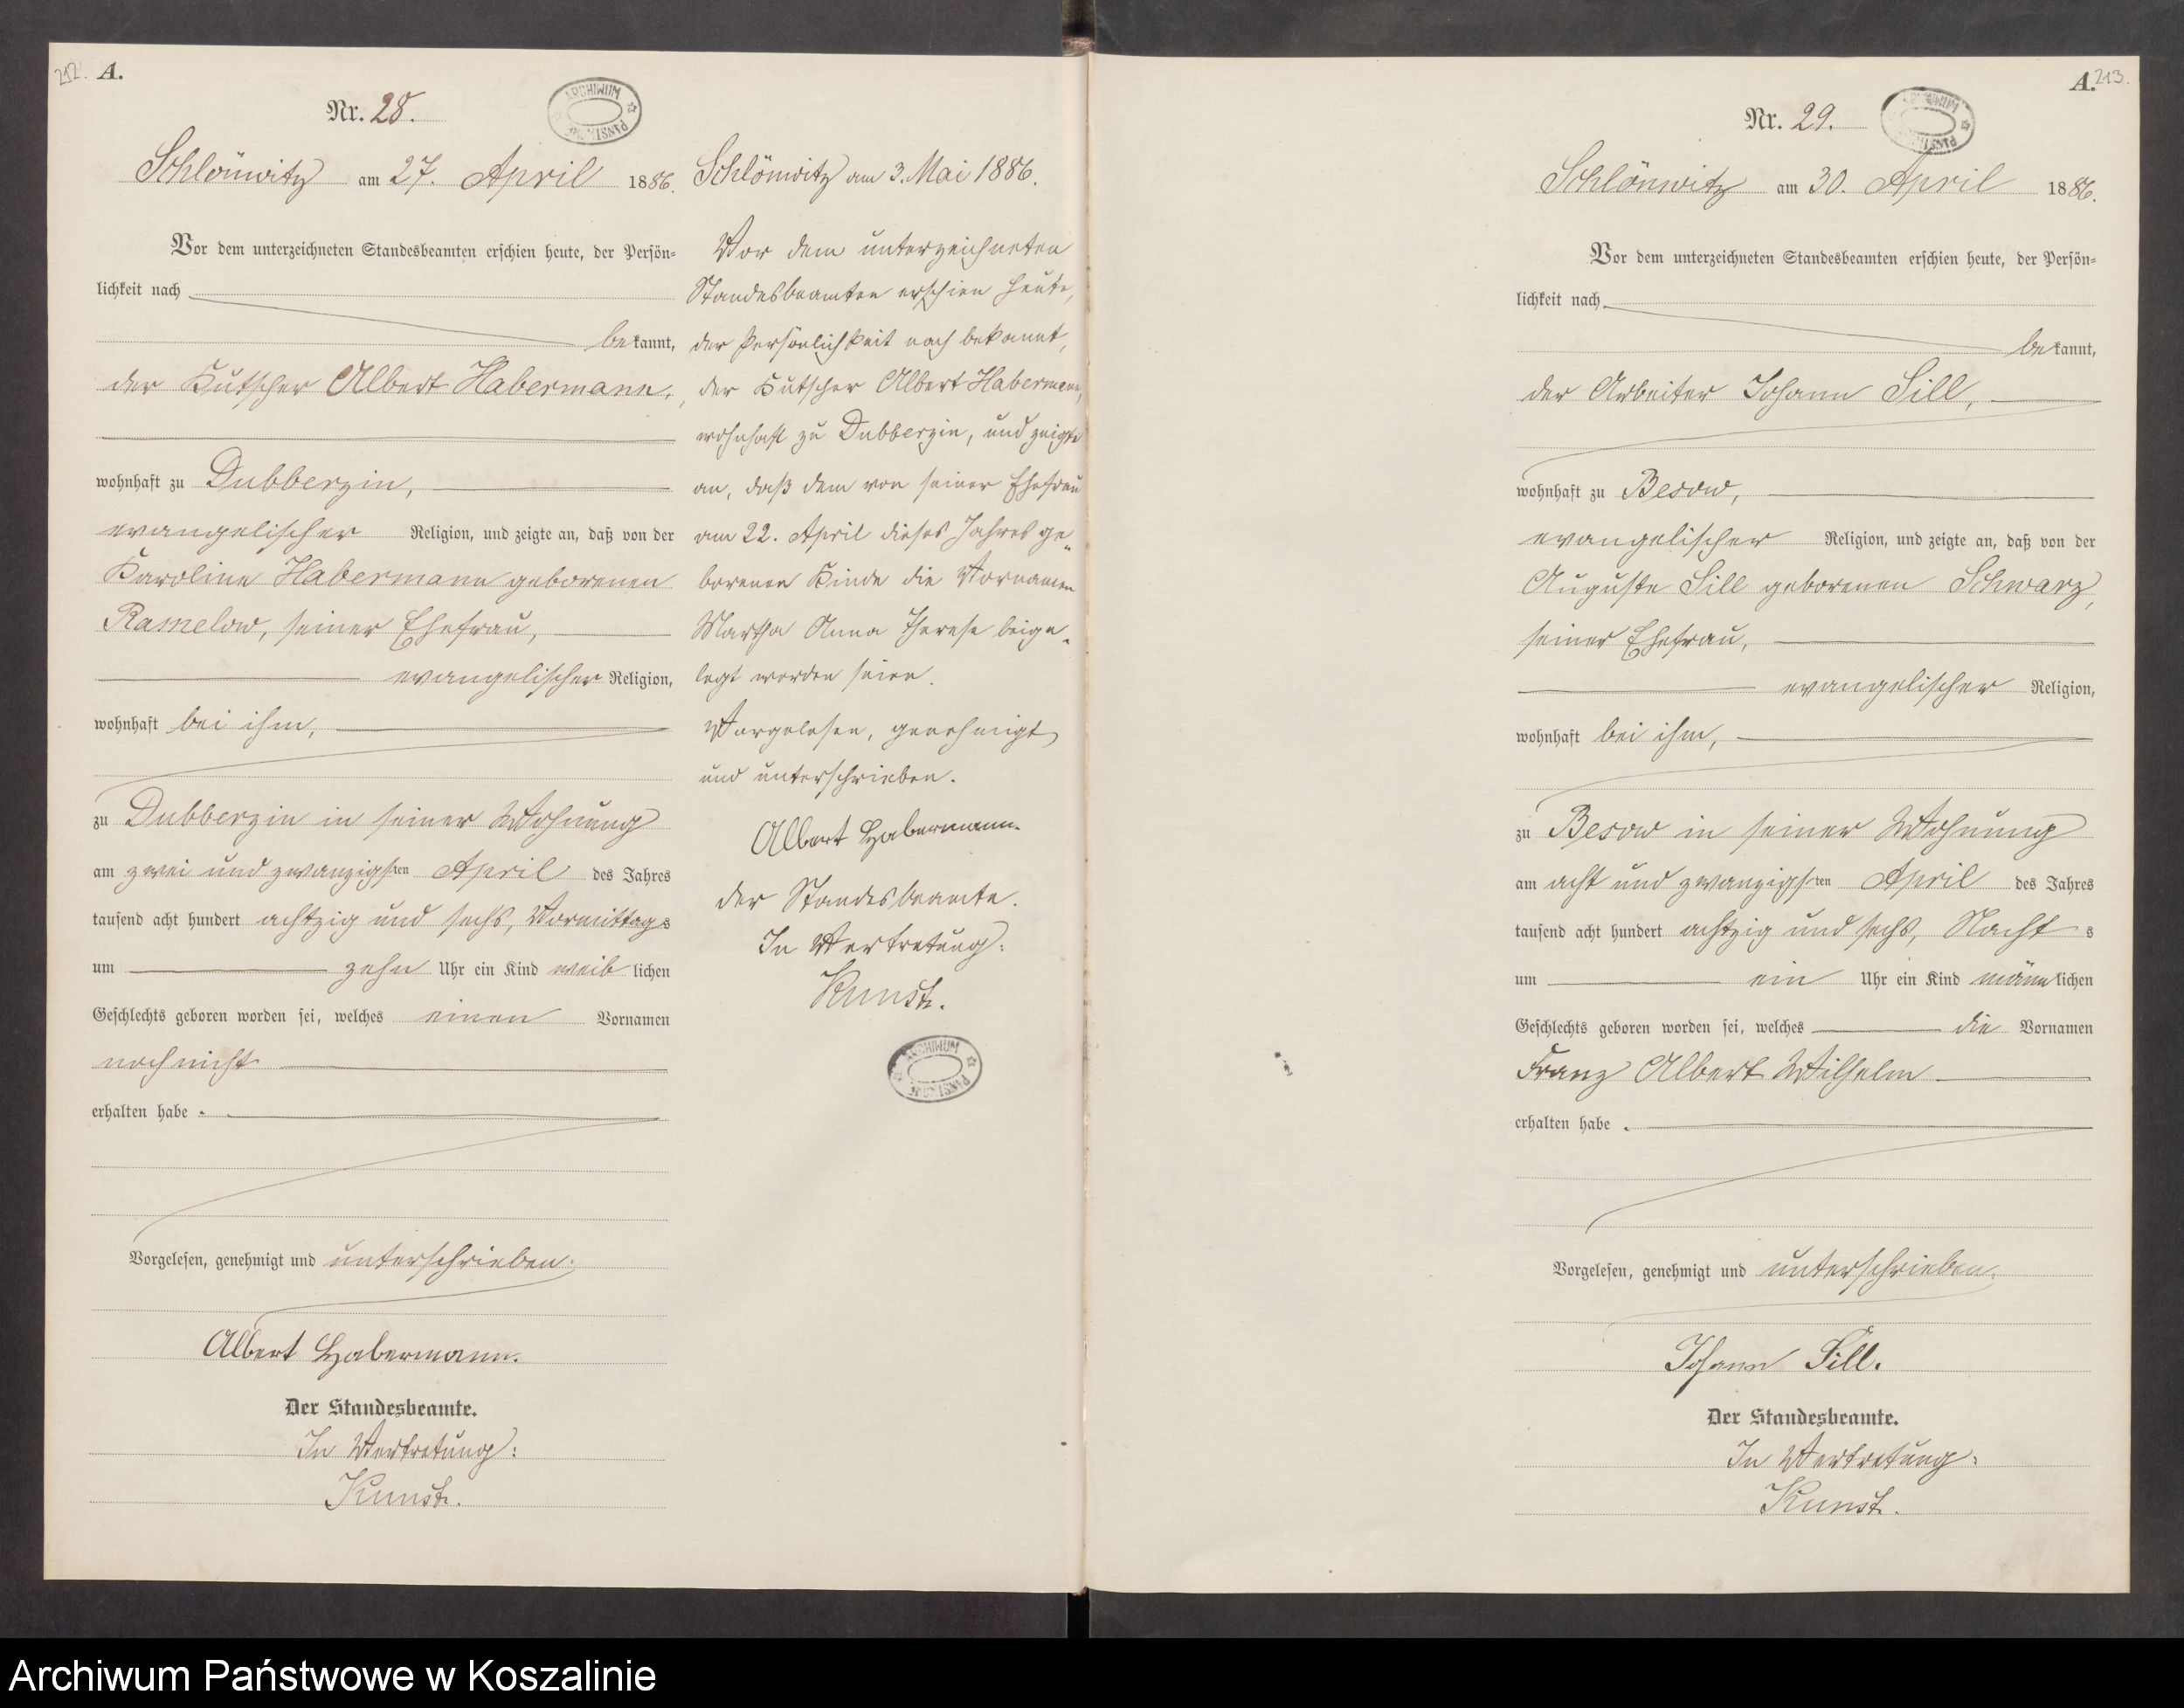 212.
A.
Nr. 28.
ARCHIWUM
Schlönwitz am 27. April 1886.
Vor dem unterzeichneten Standesbeamten erschien heute, der Persön=
lichkeit nach
bekannt,
der Kutscher Albert Habermann,
wohnhaft zu Dubberzin,
evangelischer Religion, und zeigte an, daß von der
Karoline Habermann geborenen
Ramelow, seiner Ehefrau,
evangelischer Religion,
wohnhaft bei ihm,
zu Dubberzin in seiner Wohnung
am zwei und zwanzigsten April des Jahres
tausend acht hundert achtzig und sechs, Vormittags
um zehn Uhr ein Kind weiblichen
Geschlechts geboren worden sei, welches einen Vornamen
noch nicht
erhalten habe.
Vorgelesen, genehmigt und unterschrieben.
Albert Habermann.
Der Standesbeamte.
In Vertretung:
Kunst.
Schlönwitz am 3. Mai 1886.
Vor dem unterzeichneten
Standesbeamten erschien heute,
der Persönlichkeit nach bekannt,
der Kutscher Albert Habermann,
wohnhaft zu Dubberzin, und zeigte
an, daß dem von seiner Ehefrau
am 22. April dieses Jahres ge„
borenen Kinde die Vornamen
Martha Anna Therese beige„
legt worden seien.
Vorgelesen, genehmigt
und unterschrieben.
Albert Habermann.
Der Standesbeamte.
In Vertretung:
Kunst.
ARCHIWUM
A.
213.
Nr. 29.
Schlönwitz am 30. April 1886.
Vor dem unterzeichneten Standesbeamten erschien heute, der Persön=
lichkeit nach
bekannt,
der Arbeiter Johann Sill,
wohnhaft zu Besow,
evangelischer Religion, und zeigte an, daß von der
Auguste Sill geborenen Schwarz,
seiner Ehefrau,
evangelischer Religion,
wohnhaft bei ihm,
zu Besow in seiner Wohnung
am acht und zwanzigsten April des Jahres
tausend acht hundert achtzig und sechs, Nachts
um ein Uhr ein Kind männlichen
Geschlechts geboren worden sei, welches die Vornamen
Franz Albert Wilhelm
erhalten habe.
Vorgelesen, genehmigt und unterschrieben.
Johann Sill.
Der Standesbeamte.
In Vertretung:
Kunst.
Archiwum Państwowe w Koszalinie